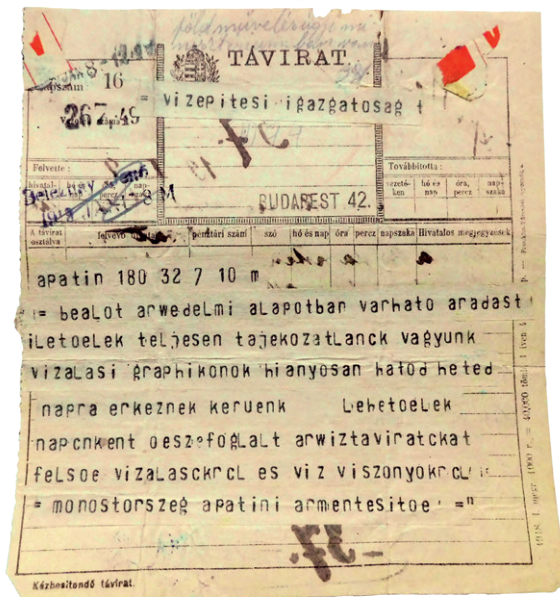 földmüvelésügyi mi
TÁVIRAT.
8
16
267.49
= vizepitesi igazgatosag t
Felvette:
Továbbította:
hivatal-
nap-
vezeté-
ken
hó és
nap
óra,
perc
nap-
szaka
8 M
BUDAPEST 42.
A távirat
osztálya
felvevő
pénztári szám
szó
hó és nap
óra
perc
napszaka
Hivatalos megjegyzések
apatin 180 32 7 10 m
= bealot arwedelmi alapotban varhato aradast
iletoelek teljesen tajekozatlanck vagyunk
vizalasi graphikonok hianyosan hatod heted
napra erkeznek keruenk lehetoelek
napcnkent oeszefoglalt arwiztaviratckat
felsoe vizalasckrcl es viz viszonyokrcl
= monostorszeg apatini armentesitoe =
37.
Kézbesítendő távirat.